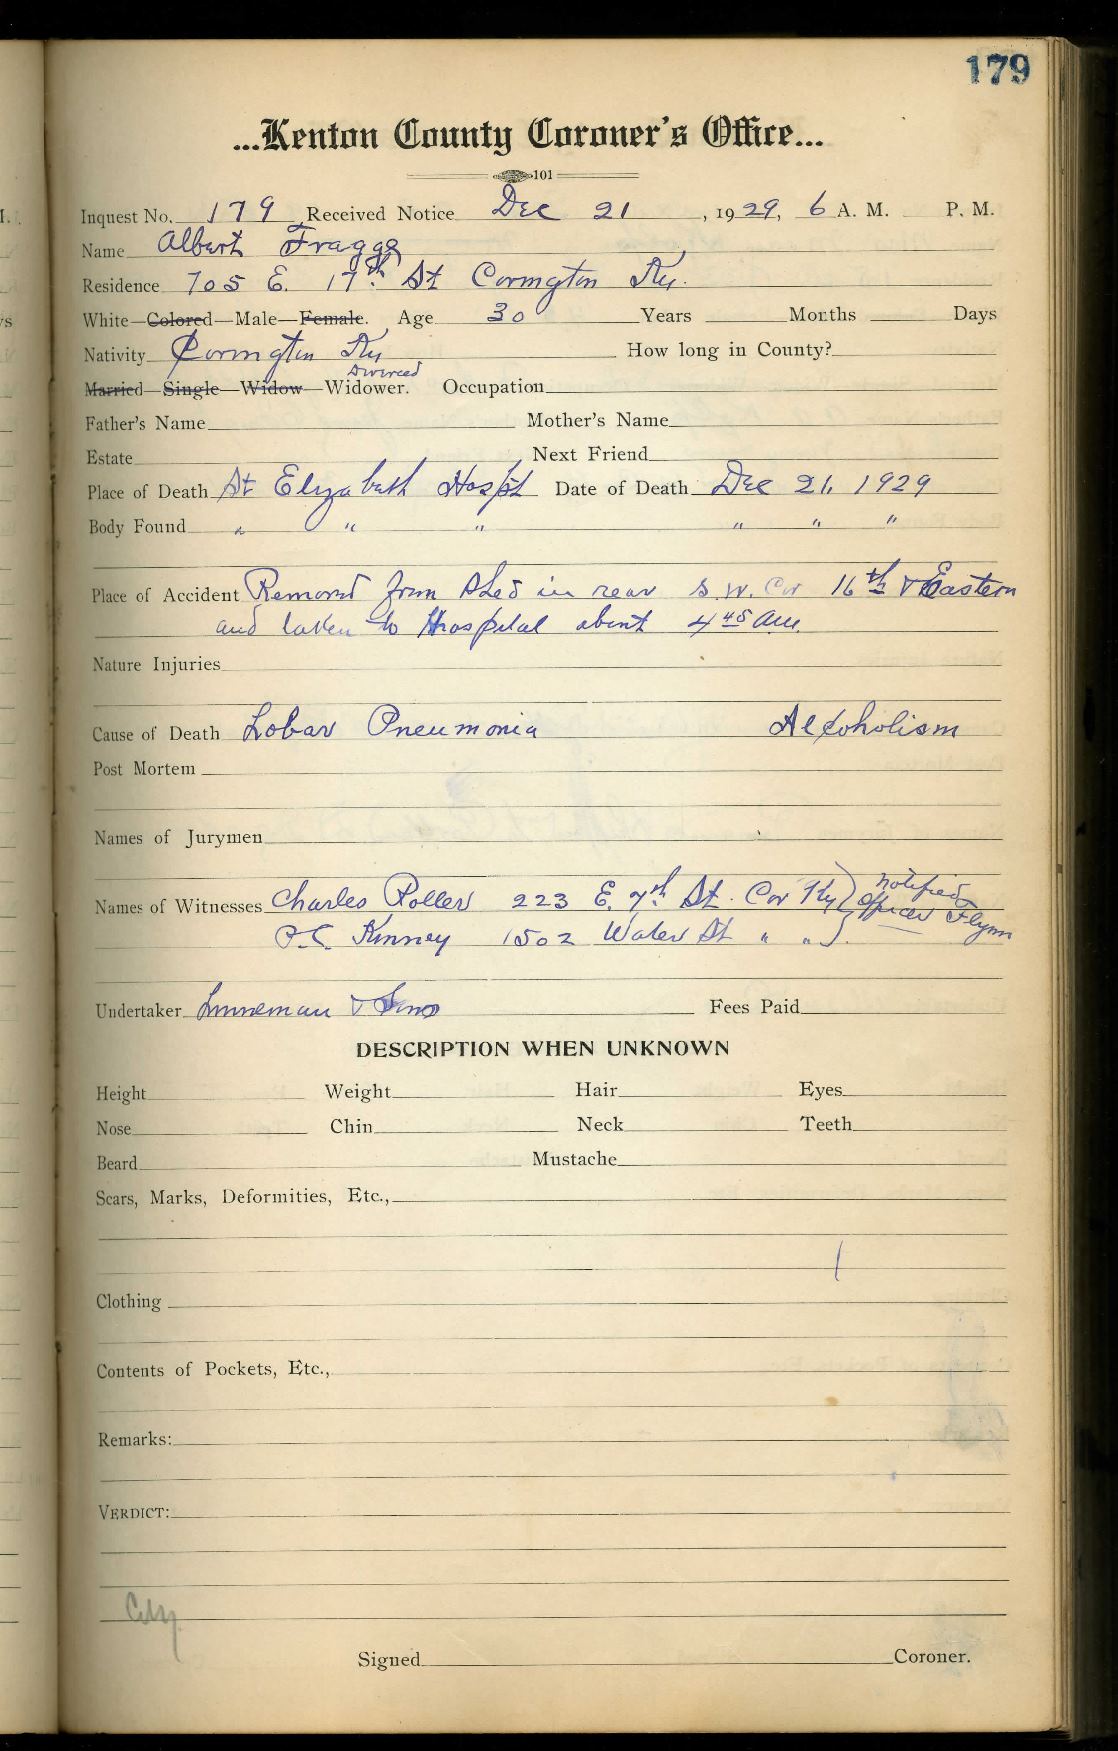 179
...Kenton County Coroner's Office...
101
Inquest No. 179 Received Notice Dec 21, 1929, 6 A. M. P. M.
Name Albert Fragge
Residence 705 E. 17th St Covington Ky.
White—Colored—Male—Female. Age 30 Years Months Days
Nativity Covington Ky How long in County?
Divorced
Married—Single—Widow—Widower. Occupation
Father's Name Mother's Name
Estate Next Friend
Place of Death St Elizabeth Hospt Date of Death Dec 21, 1929
Body Found " " " " " "
Place of Accident Removed from Shed in rear S.W. Cor 16th & Eastern
and taken to Hospital about 4 45 am.
Nature Injuries
Cause of Death Lobar Pneumonia Alcoholism
Post Mortem
Names of Jurymen
Names of Witnesses Charles Roller 223 E. 7th St. Cov Ky) notified
Kinney 1502 Water St " " officer Flynn
Undertaker Linneman & Sons Fees Paid
DESCRIPTION WHEN UNKNOWN
Height Weight Hair Eyes
Nose Chin Neck Teeth
Beard Mustache
Scars, Marks, Deformities, Etc.,
Clothing
Contents of Pockets, Etc.,
Remarks:
VERDICT:
City
Signed Coroner.